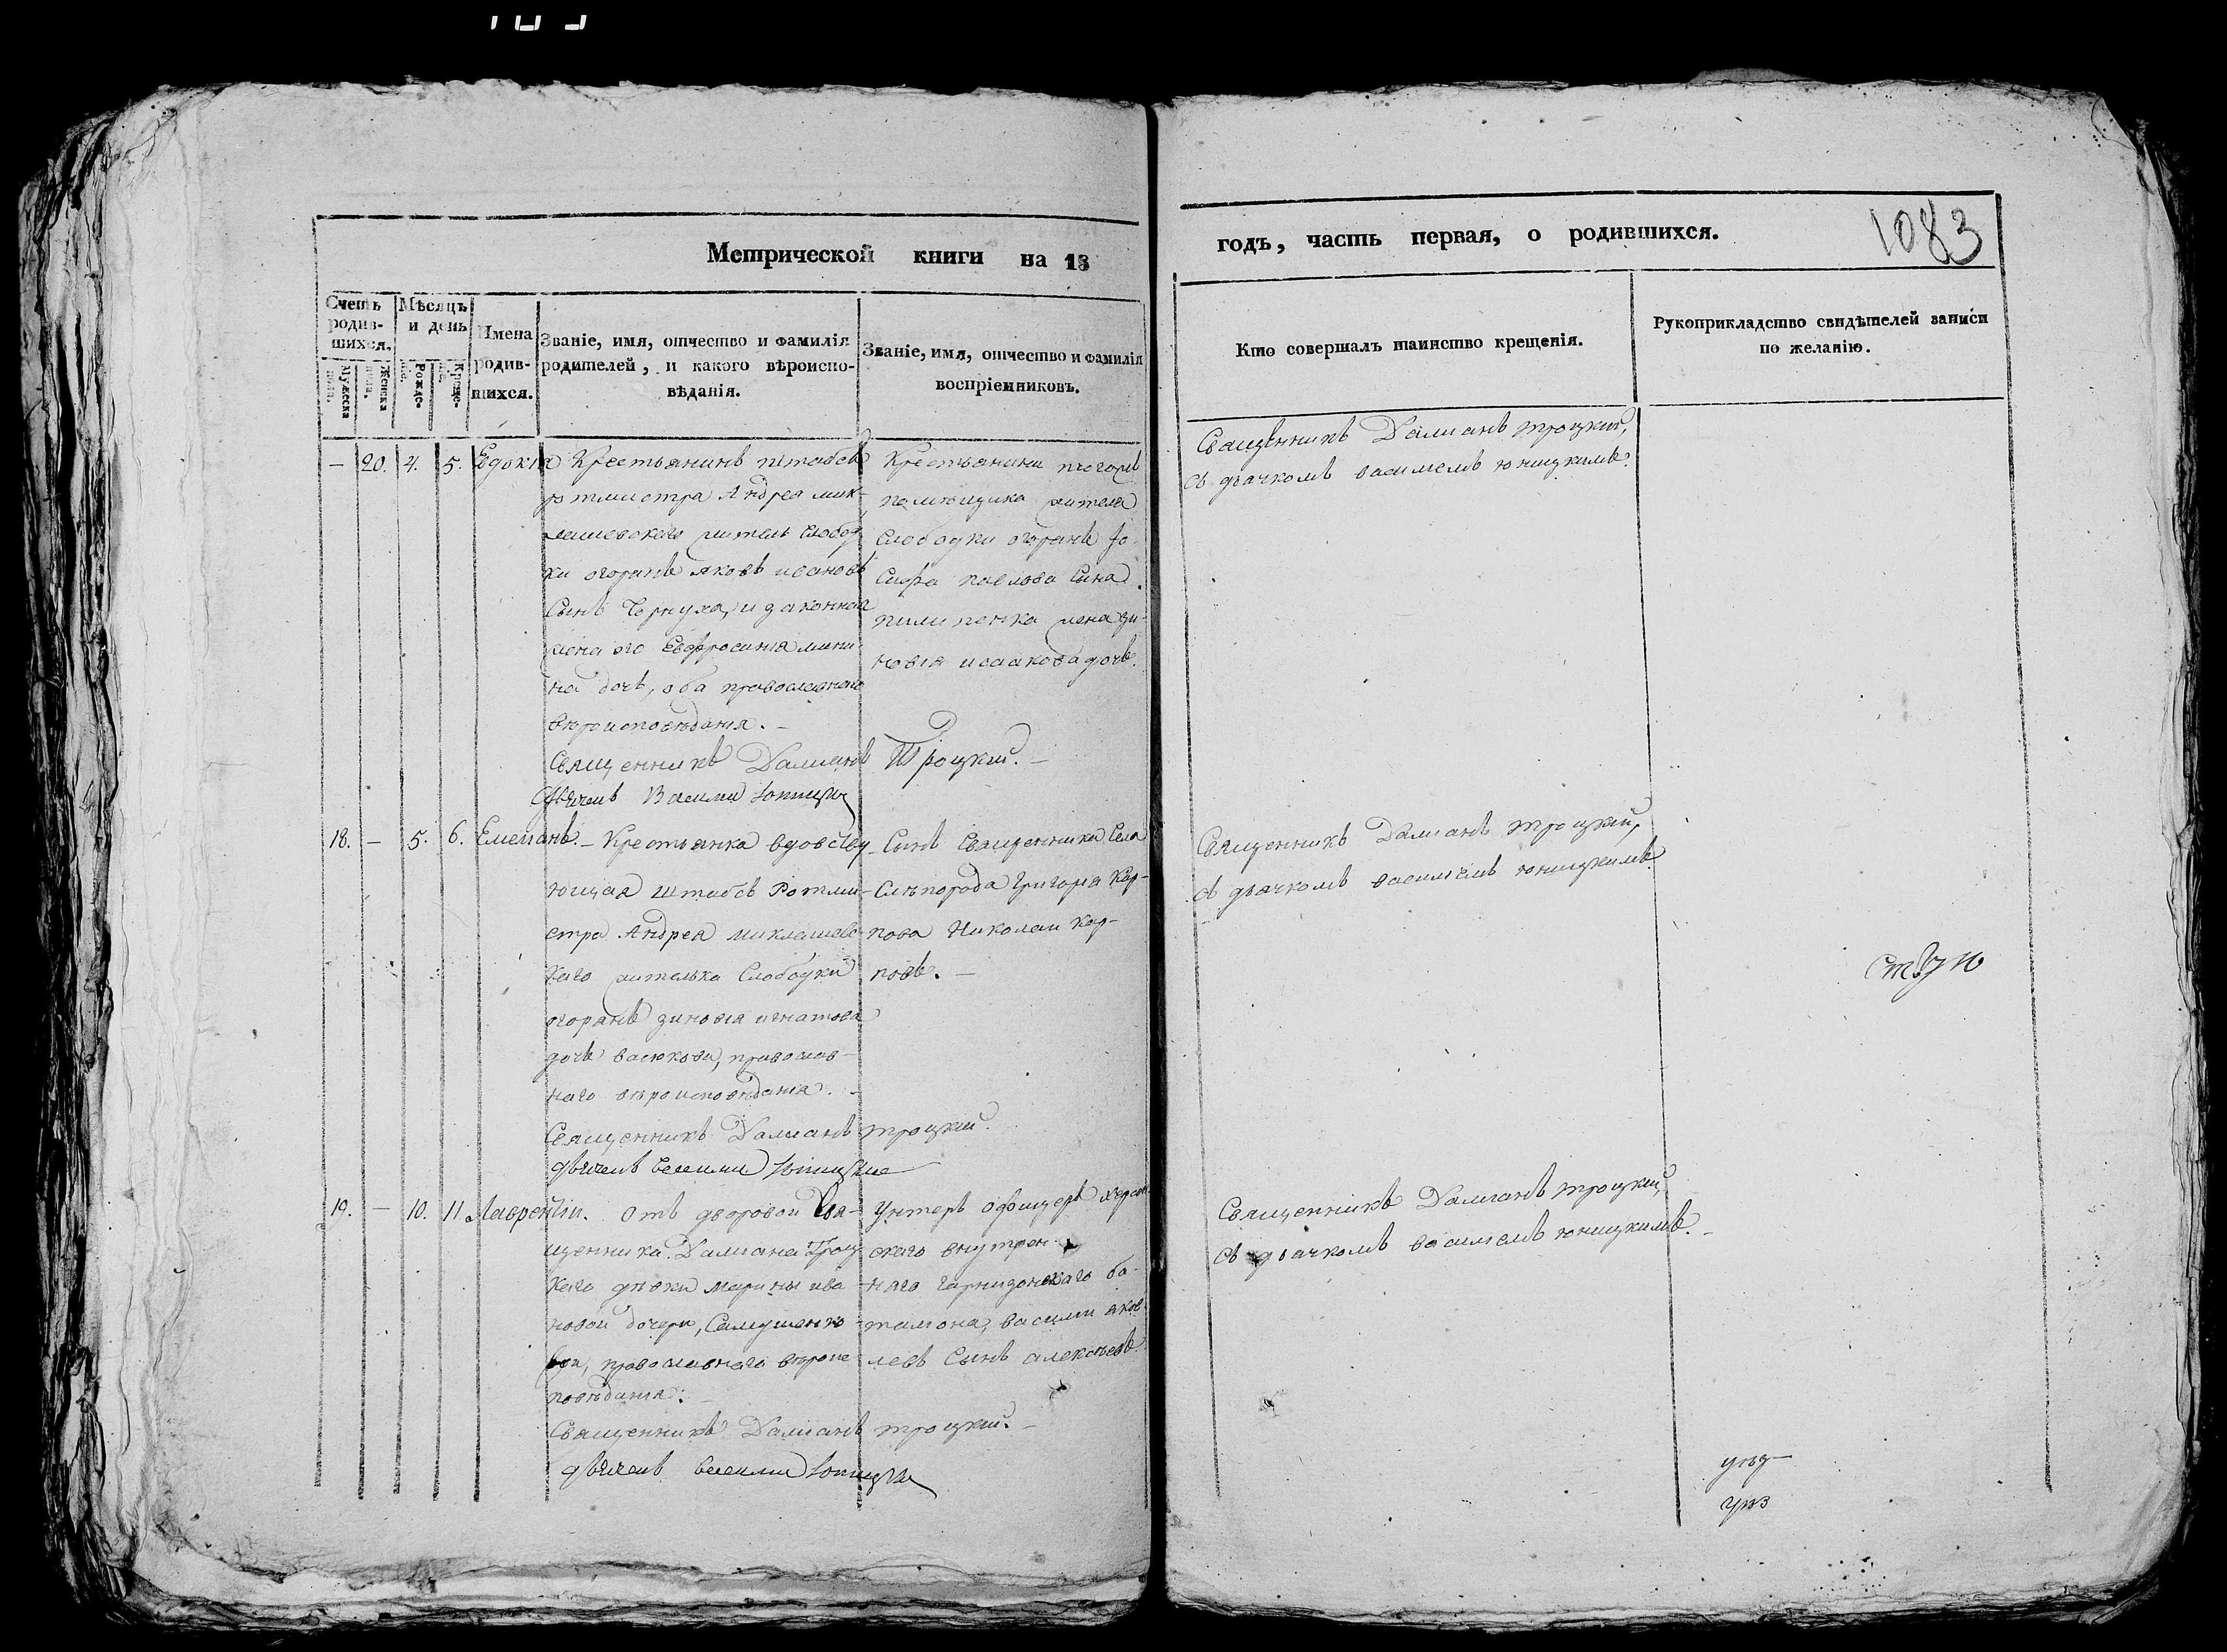 Метрической книги на 18
годъ, часть первая, о родившихся.
1083
Счетъ родившихся.
Мужеска пола.
Женска пола.
Мѣсяцъ и день
Рожденіе.
Крещеніе.
Имена родившихся.
Званіе, имя, отчество и фамилія
родителей, и какого вѣроиспо-
вѣданія.
Званіе, имя, отчество и фамилія
воспріемниковъ.
Кто совершалъ таинство крещенія.
Рукоприкладство свидѣтелей записи
по желанію.
— 20. 4. 5. Евдокія
Крестьянинъ штабсъ
ротмистра Андрея мик-
лашевскаго житель слобод
ки огорань яковъ ивановъ
сынъ Чернуха, и законная
жена его Евфросинія
на дочь, оба православнаго
вѣроисповѣданія. —
Священникъ Даміанъ Троцкій. —
Дьячекъ Василій Юницкій
Крестьянина тогожъ
помѣщика жителя
слободки огорань Іо-
сифа павлова сына
пилипенка жена зи-
новія исаакова дочь.
Священникъ Даміанъ троцкій,
съ дьячкомъ василіемъ юницкимъ.
18. — 5. 6. Емеліанъ. —
Крестьянка вдовству
ющая штабсъ Ротми-
стра Андрея миклашевс
каго жителька слободки
огорань зиновія игнатова
дочь васюкова, православ-
наго вѣроисповѣданія. —
Священникъ Даміанъ троцкій.
Дьячекъ василій Юницкій
Сынъ священника села
Слѣпорода Григорія Кар-
пова Николай Кар-
повъ. —
Священникъ Даміанъ троцкій,
съ дьячкомъ василіемъ юницкимъ.
19. — 10. 11. Лаврентій.
Отъ дворовой свя-
щенника Даміана Троц
каго дѣвки марины ива
новой дочери,
вой, православнаго вѣроис
повѣданія. —
Священникъ Даміанъ троцкій. —
Дьячекъ василій Юницкій
Унтеръ офицеръ херсон
скаго внутрен
няго гарнизонскаго ба-
таліона, василій яков
левъ сынъ алексѣевъ.
Священникъ Даміанъ троцкій,
съ дьячкомъ василіемъ юницкимъ. —